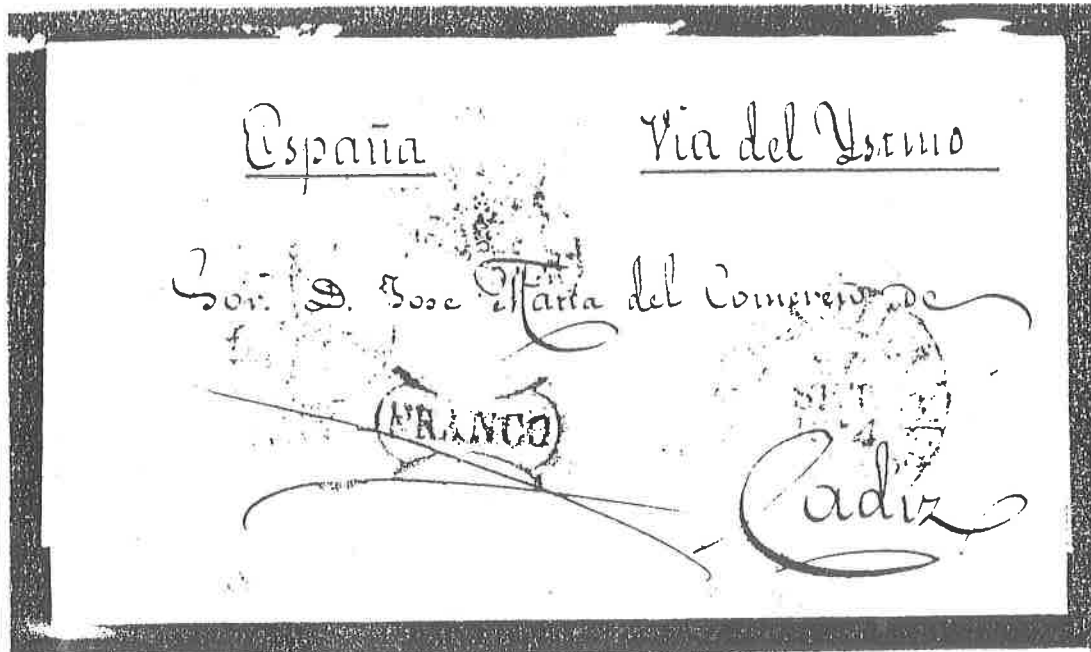 España Via del Ysimo
Sor. D. Jose Maria del Comercio de
FRANCO
SET
4
Cadiz